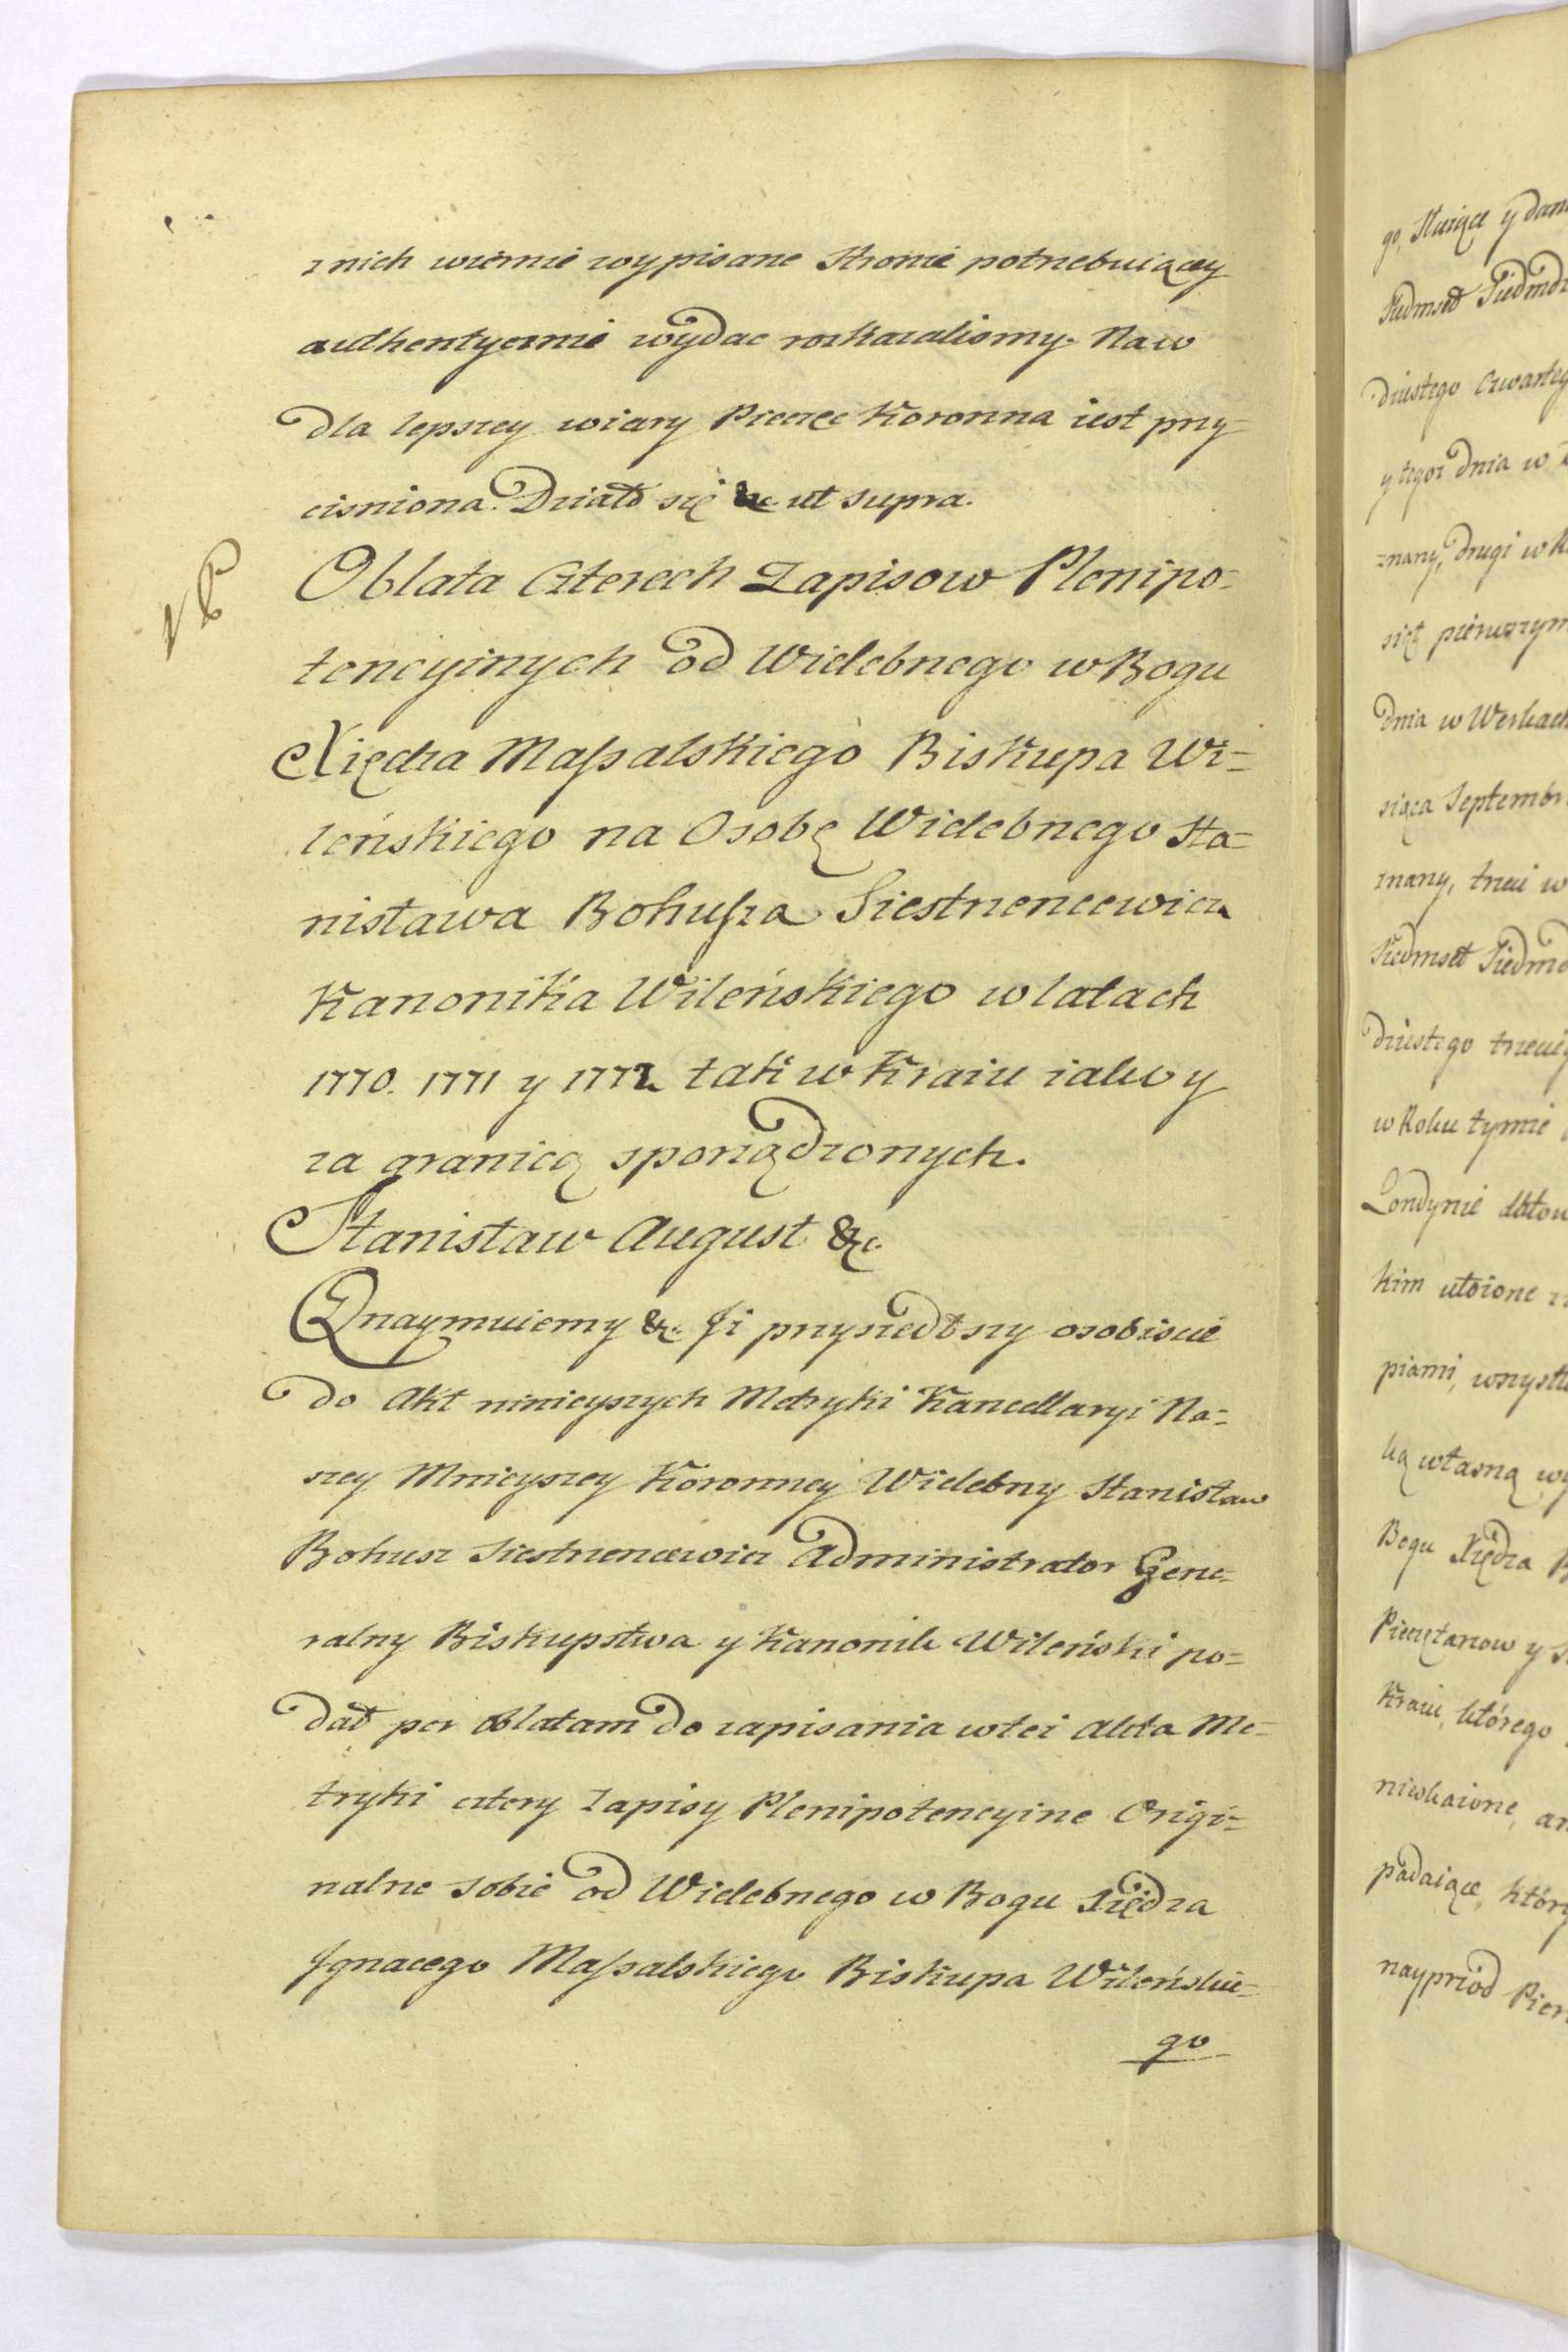 z nich wiernie wypisane Stronie potrzebuiącey
authentycznie wydac rozkazalismy. Na co
dla lepszey wiary Pieczęc Koronna iest przy-
cisniona. Działo się &c. ut supra.
NB
Oblata Czterech Zapisow Plenipo-
tencyinych od Wielebnego w Bogu
Xiędza Massalskiego Biskupa Wi-
leńskiego na Osobę Wielebnego Sta-
nisława Bohusza Siestrzencewicza
Kanonika Wileńskiego w latach
1770. 1771 y 1772 tak w Kraiu iako y
za granicą sporządzonych.
Stanisław August &c.
Oznaymuiemy &c. Jż przyszedłszy osobiscie
do Akt ninieyszych Metryki Kancellaryi Na-
szey Mnieyszey Koronney Wielebny Stanisław
Bohusz Siestrzencewicz Administrator Gene-
ralny Biskupstwa y Kanonik Wileński po-
dał per oblatam do zapisania w też Akta Me-
tryki cztery Zapisy Plenipotencyine Origi-
nalne sobie od Wielebnego w Bogu Xiędza
Jgnacego Massalskiego Biskupa Wileńskie-
go
go, służące y dan
Siedmset Siedmdz
dziestego czwarteg
y tegoż dnia w
znany, drugi w R
siąt pierwszym
dnia w Werkach
siąca Septembr
znany, trzeci w
Siedmset Siedmd
dziestego trzecieg
w Roku tymże
Londynie datow
kim
piami, wszystk
ką własną wy
Bogu Xiędza B
Pieczętarzow y
Kraiu, którego
nieskażone, an
padaiące, któr
nayprzód Pier